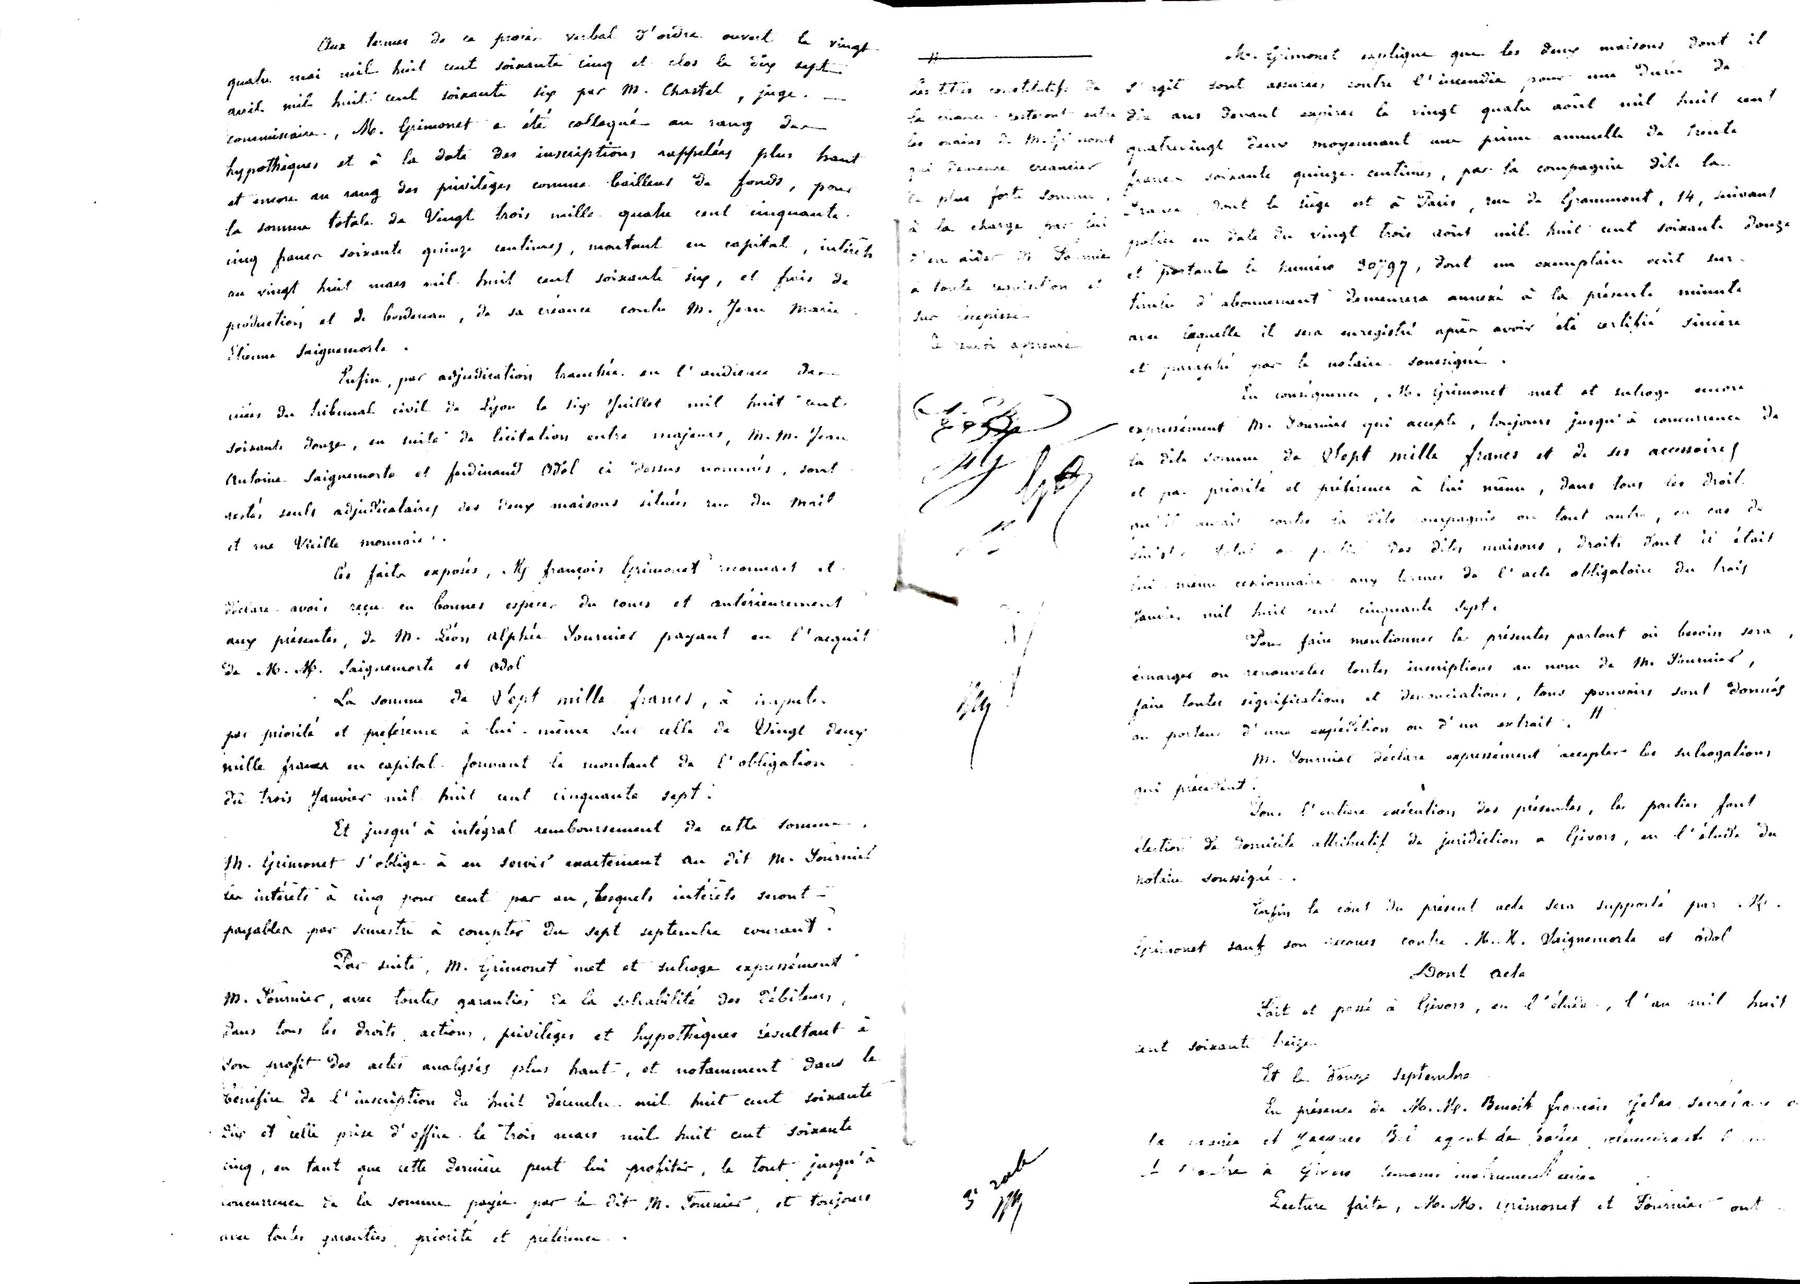 Aux termes de ce procès verbal d'ordre ouvert le vingt
quatre mai mil huit cent soixante cinq et clos le dix sept
avril mil huit cent soixante six par M. Chastel, juge
commissaire, M. Grimonet a été colloqué au rang des
hypothèques et à la date des inscriptions rappelées plus haut
et encore au rang des privilèges comme bailleur de fonds, pour
la somme totale de Vingt trois mille quatre cent cinquante
cinq francs soixante quinze centimes, montant en capital, intérêts
au vingt huit mars mil huit cent soixante six, et frais de
production et de bordereau, de sa créance contre M. Jean Marie
Etienne Saignemorte.
Enfin, par adjudication tranchée en l'audience des
criées du tribunal civil de Lyon le six Juillet mil huit cent
soixante douze, en suite de licitation entre majeurs, M.M. Jean
Antoine Saignemorte et ferdinand Odol ci dessus nommés, sont
restés seuls adjudicataires des deux maisons situées rue du Mail
et rue Vieille monnaie.
Ces faits exposés, M. françois Grimonet reconnait et
déclare avoir reçu en bonnes espèces du cours et antérieurement
aux présentes, de M. Léon Alphée Fournier payant en l'acquit
de M.M. Saignemorte et Odol
La somme de Sept mille francs, à imputer
par priorité et préférence à lui-même sur celle de Vingt deux
mille francs en capital formant le montant de l'obligation
du trois Janvier mil huit cent cinquante sept.
Et jusqu'à intégral remboursement de cette somme,
M. Grimonet s'oblige à en servir exactement au dit M. Fournier
les intérêts à cinq pour cent par an, lesquels intérêts seront
payables par semestre à compter du sept septembre courant.
Par suite, M. Grimonet met et subroge expressément
M. Fournier, avec toutes garanties de la solvabilité des débiteurs,
dans tous les droits, actions, privilèges et hypothèques résultant à
son profit des actes analysés plus haut, et notamment dans le
bénéfice de l'inscription du huit décembre mil huit cent soixante
dix et celle prise d'office le trois mars mil huit cent soixante
cinq, en tant que cette dernière peut lui profiter, le tout jusqu'à
concurrence de la somme payée par le dit M. Fournier, et toujours
avec toutes garanties, priorité et préférence.
Les titres constitutifs de
la créance resteront entre
les mains de M. Grimonet
qui demeure créancier
de plus forte somme,
à la charge par lui
d'en aider M. Fournier
à toute réquisition et
sur récépissé
Ce renvoi approuvé
3e role
M. Grimonet explique que les deux maisons dont il
s'agit sont assurées contre l'incendie, pour une durée de
dix ans devant expirer le vingt quatre août mil huit cent
quatrevingt deux moyennant une prime annuelle de trente
francs soixante quinze centimes, par la compagnie dite la
France, dont le siège est à Paris, rue de Grammont, 14, suivant
police en date du vingt trois août mil huit cent soixante douze
et portant le numéro 30797, dont un exemplaire écrit sur
timbre d'abonnement demeurera annexé à la présente minute
avec laquelle il sera enregistré après avoir été certifié sincère
et paraphé par le notaire soussigné.
En conséquence, M. Grimonet met et subroge encore
expressément M. Fournier qui accepte, toujours jusqu'à concurrence de
la dite somme de Sept mille francs et de ses accessoires
et par priorité et préférence à lui même, dans tous les droits
qu'il aurait contre la dite compagnie ou tout autre, en cas de
sinistre total ou partiel des dites maisons, droits dont il était
lui même cessionnaire aux termes de l'acte obligatoire du trois
Janvier mil huit cent cinquante sept.
Pour faire mentionner les présentes partout où besoin sera,
émarger ou renouveler toutes inscriptions au nom de M. Fournier,
faire toutes significations et dénonciations, tous pouvoirs sont donnés
au porteur d'une expédition ou d'un extrait. //
M. Fournier déclare expressément accepter les subrogations
qui précèdent.
Pour l'entière exécution des présentes, les parties font
élection de domicile attributif de juridiction à Givors, en l'étude du
notaire soussigné.
Enfin le coût du présent acte sera supporté par M.
Grimonet sauf son recours contre M.M. Saignemorte et Odol
Dont acte
Fait et passé à Givors, en l'étude, l'an mil huit
cent soixante treize
Et le douze septembre
En présence de M.M. Benoit françois Gelas secrétaire
la mairie et Jacques agent de police, demeurant
à Givors témoins instrumentaires
Lecture faite, M.M. Grimonet et Fournier ont